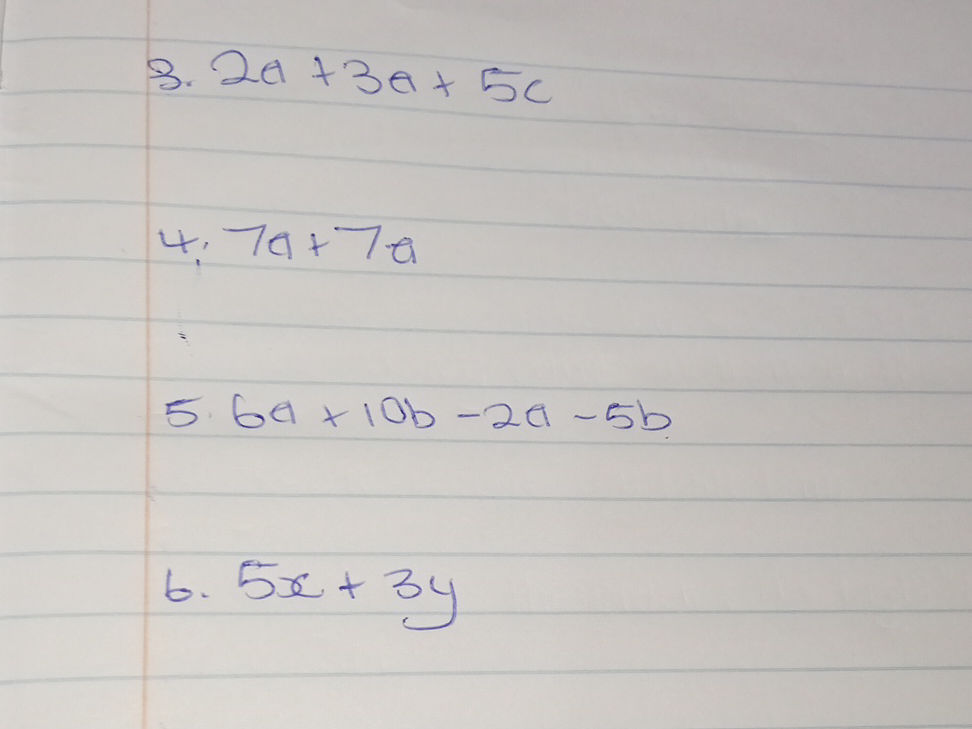 3. 2a + 3a + 5c
4. 7a + 7a
5. 6a + 10b - 2a - 5b
6. 5x + 3y